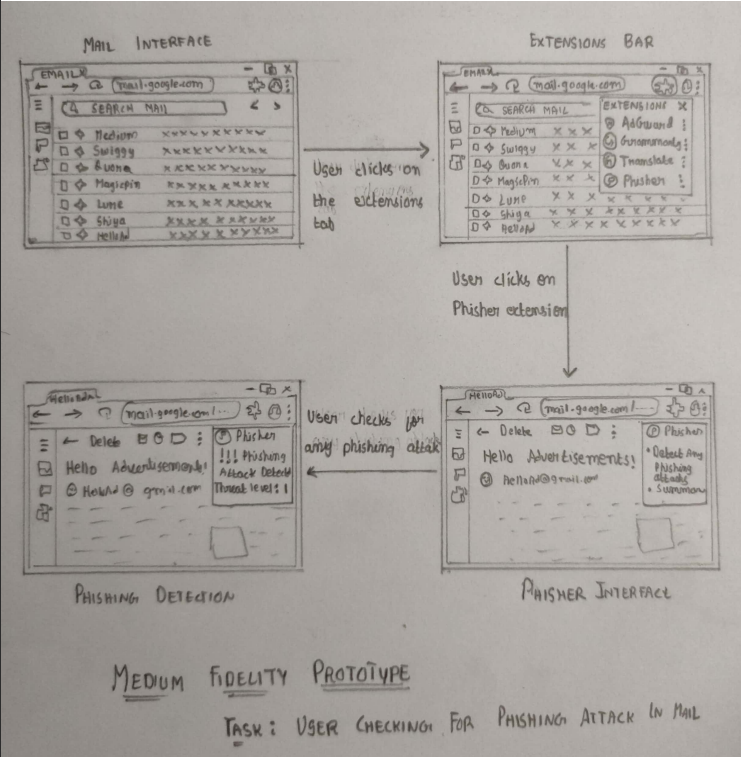 MAIL INTERFACE
EMAIL X
mail.google.com
SEARCH MAIL
Medium xxxxxxxxx
Swiggy xxxxxxxxx
Buona xxxxxxxxx
Magicpin xxxxxxxxx
Lume xxxxxxxxx
Shiya xxxxxxxxx
HelloAd xxxxxxxxx
User clicks on
the extensions
tab
EXTENSIONS BAR
EMAIL
mail.google.com
SEARCH MAIL
Medium x x x
Swiggy x x x
Buona x x x
MagicPin x x
Lume x x x x x x x x
Shiya x x x x x x x x
HelloAd x x x x x x x x
EXTENSIONS X
AdGuard
Grammarly
Translate
Phisher
User clicks on
Phisher extension
mail.google.com/....
Delete
Hello Advertisements!
HelloAd@gmail.com
P Phisher
• Detect Any
Phishing
attacks
• Summary
PHISHER INTERFACE
User checks for
any phishing attak
mail.google.com/...
Delete
Hello Advertisements!
HelloAd@gmail.com
P Phisher
!!! Phishing
Attack Detectd
Threat level: 1
PHISHING DETECTION
MEDIUM FIDELITY PROTOTYPE
TASK: USER CHECKING FOR PHISHING ATTACK IN MAIL